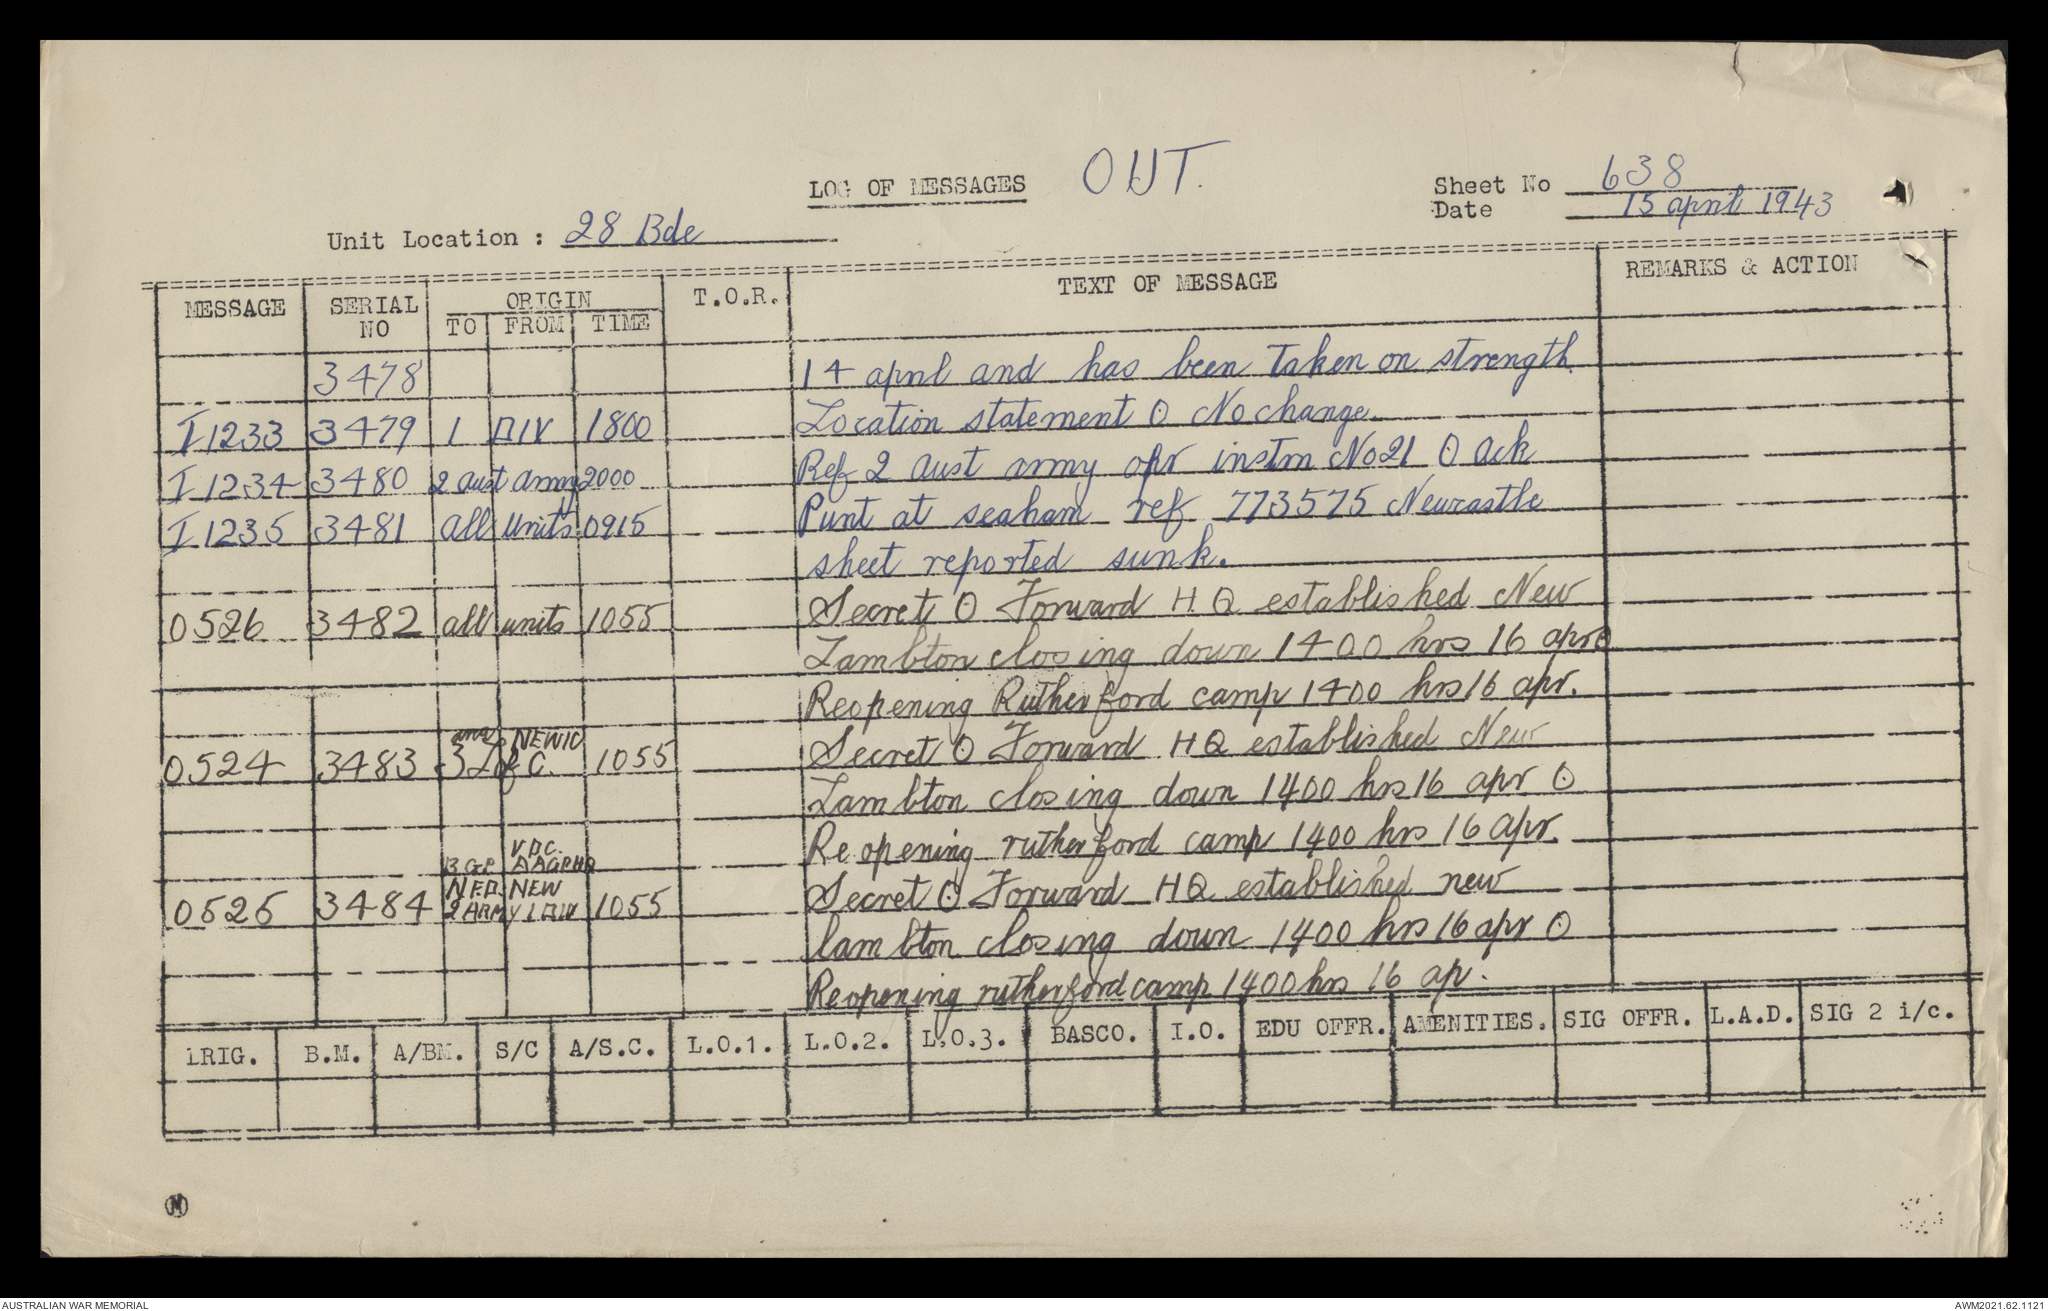 LOG OF MESSAGES OUT.
Sheet No 638
Date 15 april 1943
Unit Location : 28 Bde
MESSAGE SERIAL NO ORIGIN TO FROM TIME T.O.R. TEXT OF MESSAGE REMARKS & ACTION
3478 14 april and has been taken on strength.
I1233 3479 1 DIV 1800 Location statement O No change.
I1234 3480 2 aust army 2000 Ref 2 aust army opr instrn No21 O ack
I1235 3481 all units 0915 Punt at seaham ref 773575 Newcastle
sheet reported sunk.
0526 3482 all units 1055 Secret O Forward H.Q established New
Lambton closing down 1400 hrs 16 apr O
Reopening Rutherford camp 1400 hrs 16 apr.
0524 3483 3 L of C. NEWIC 1055 Secret O Forward HQ established New
Lambton closing down 1400 hrs 16 apr O
Re opening rutherford camp 1400 hrs 16 apr.
V.D.C.
B GP AAGPHQ
N.F.D. NEW
0525 3484 2 ARMY 1 DIV 1055 Secret O Forward HQ established new
lambton closing down 1400 hrs 16 apr O
Reopening rutherford camp 1400 hrs 16 ap.
LRIG. B.M. A/BM. S/C A/S.C. L.O.1. L.O.2. L.O.3. BASCO. I.O. EDU OFFR. AMENITIES. SIG OFFR. L.A.D. SIG 2 i/c.
M
AUSTRALIAN WAR MEMORIAL
AWM2021.62.1121